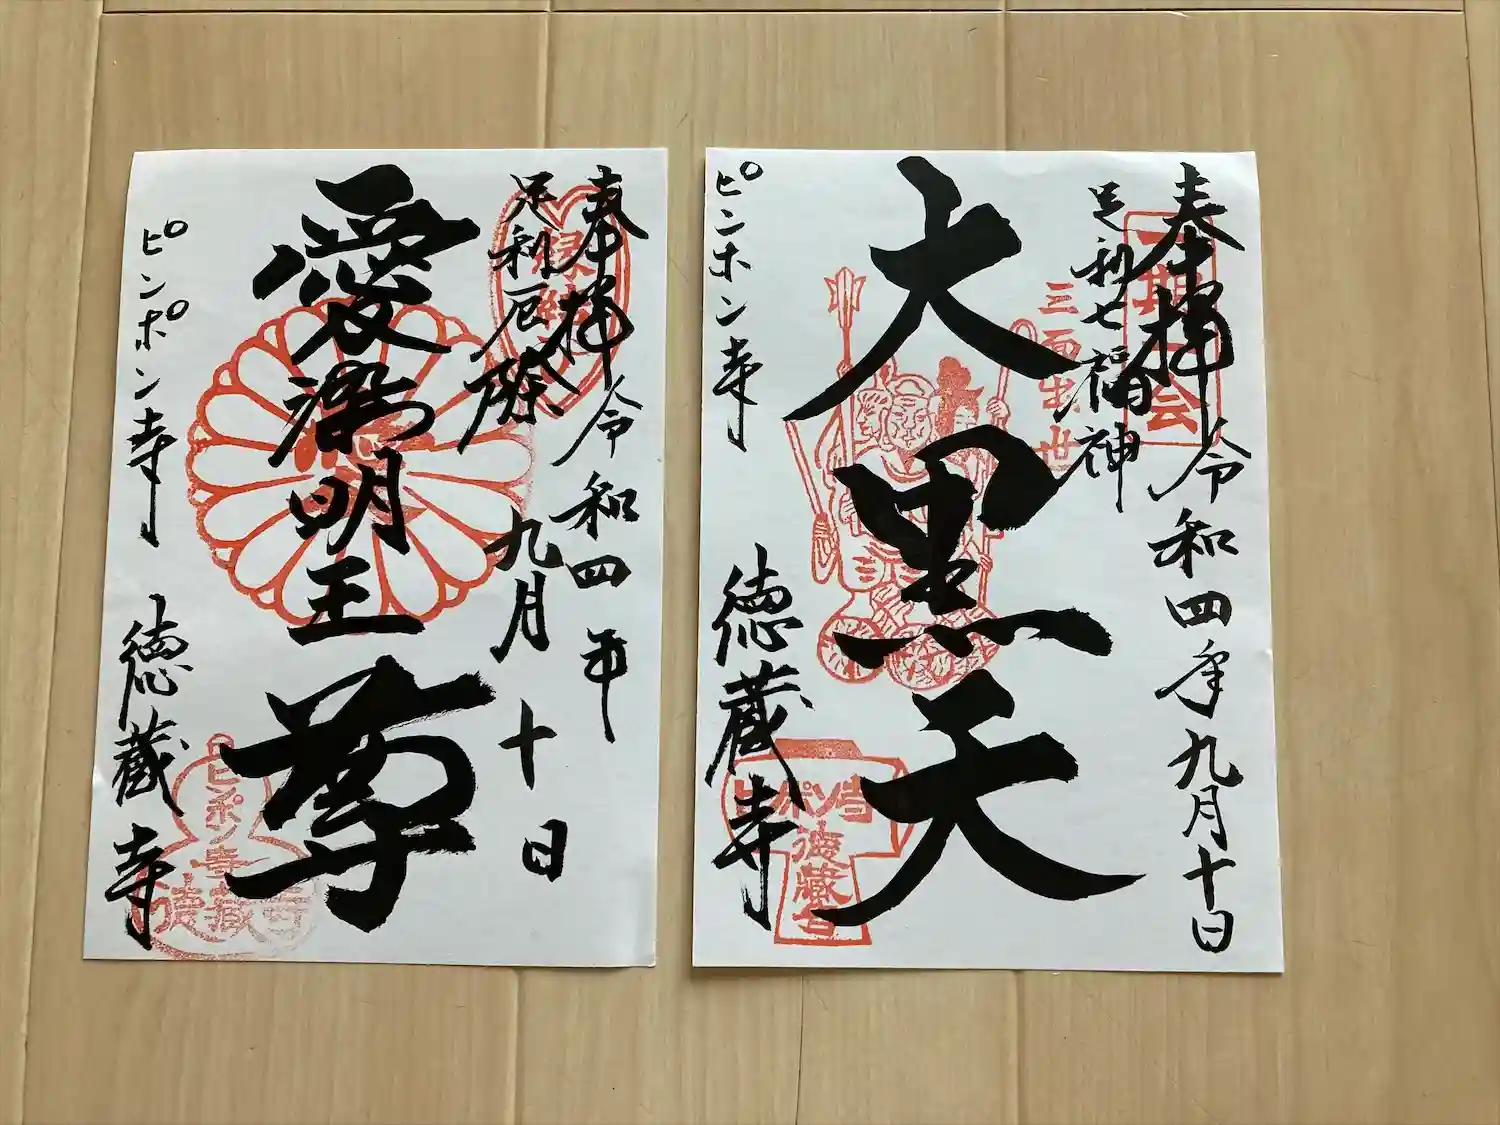 奉拝 令和四年
九月十日
縁結
足利厄除
愛染明王尊
ピンポン寺
徳蔵寺
ピンポン寺
徳蔵寺
奉拝 令和四年九月十日
一期一会
足利七福神
三面出世
大黒天
ピンポン寺
徳蔵寺
ピンポン寺
徳蔵寺